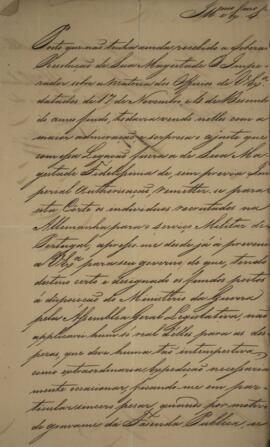 Posto que não tenha ainda recebido a Soberana
Resolução de Sua Magestade O Impe-
rador sobre a materia dos Officios de V. Ex.ª
datados de 17 de Novembro e 5 de Dezembro
do anno findo, todavia vendo nelles com a
maior admiração e sorpresa o ajuste que
com essa Legação fizera a de Sua Ma-
gestade Fidelissima de, sem previa Im-
perial Authorisação, remetter-se para
esta Côrte os individuos recrutados na
Allemanha para o serviço Militar de
Portugal, apresso-me desde já a prevenir
a V. Ex.ª para seu governo, de que, tendo
destino certo e designado os fundos postos
á disposição do Ministerio da Guerra
pela Assemblea Geral Legislativa, não
applicarei hum só real delles para as des-
pezas, que deve huma tão intempestiva
como extraordinaria expedição necessaria-
mente occasionar, ficando-me em par-
ticular sincero pesar, quando por motivo
de gravame da Fazenda Publica, se